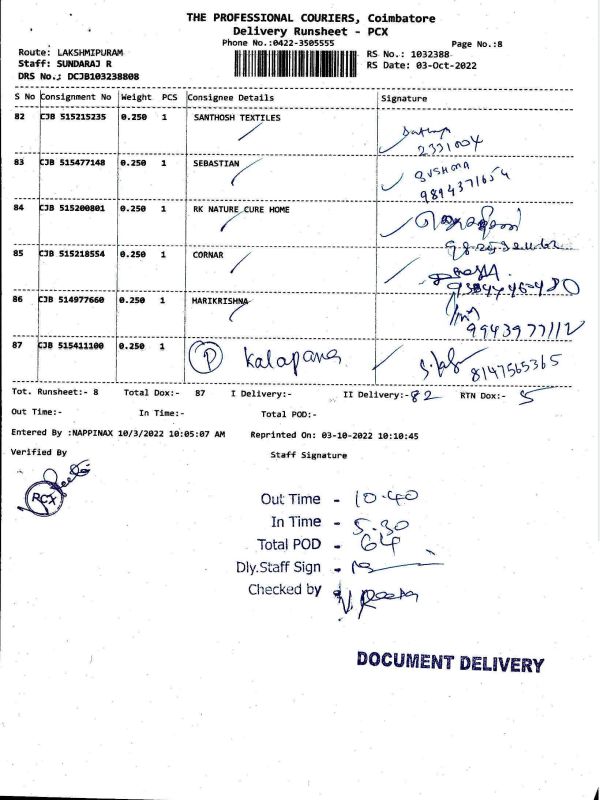 THE PROFESSIONAL COURIERS, Coimbatore
Delivery Runsheet - PCX
Phone No.:0422-3505555
Page No.:8
Route: LAKSHMIPURAM
RS No.: 1032388
Staff: SUNDARAJ R
RS Date: 03-Oct-2022
DRS No.; DCJB103238808
S No Consignment No Weight PCS Consignee Details Signature
82 CJB 515215235 0.250 1 SANTHOSH TEXTILES
2331004
83 CJB 515477148 0.250 1 SEBASTIAN SUSHMA
9894371654
84 CJB 515200801 0.250 1 RK NATURE CURE HOME
85 CJB 515218554 0.250 1 CORNAR
86 CJB 514977660 0.250 1 HARIKRISHNA
9943977112
87 CJB 515411100 0.250 1 P Kalapana 8147565365
Tot. Runsheet:- 8 Total Dox:- 87 I Delivery:- II Delivery:- 82 RTN Dox:- 5
Out Time:- In Time:- Total POD:-
Entered By :NAPPINAX 10/3/2022 10:05:07 AM Reprinted On: 03-10-2022 10:10:45
Verified By Staff Signature
PCX
Out Time - 10.40
In Time - 5.30
Total POD - 64
Dly.Staff Sign -
Checked by
DOCUMENT DELIVERY